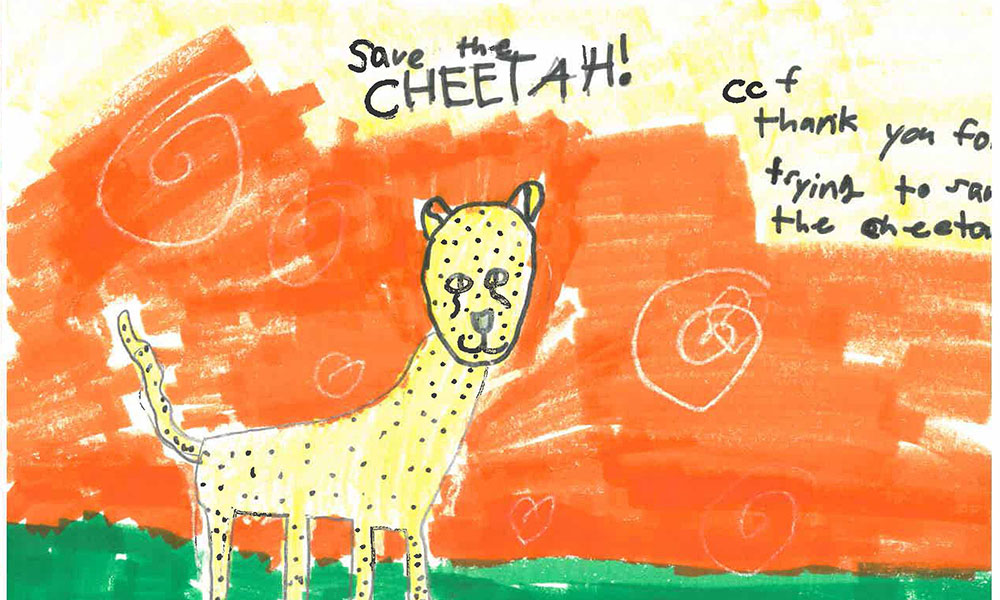 Save the
CHEETAH!
ccf
thank you fo
trying to sav
the cheeta